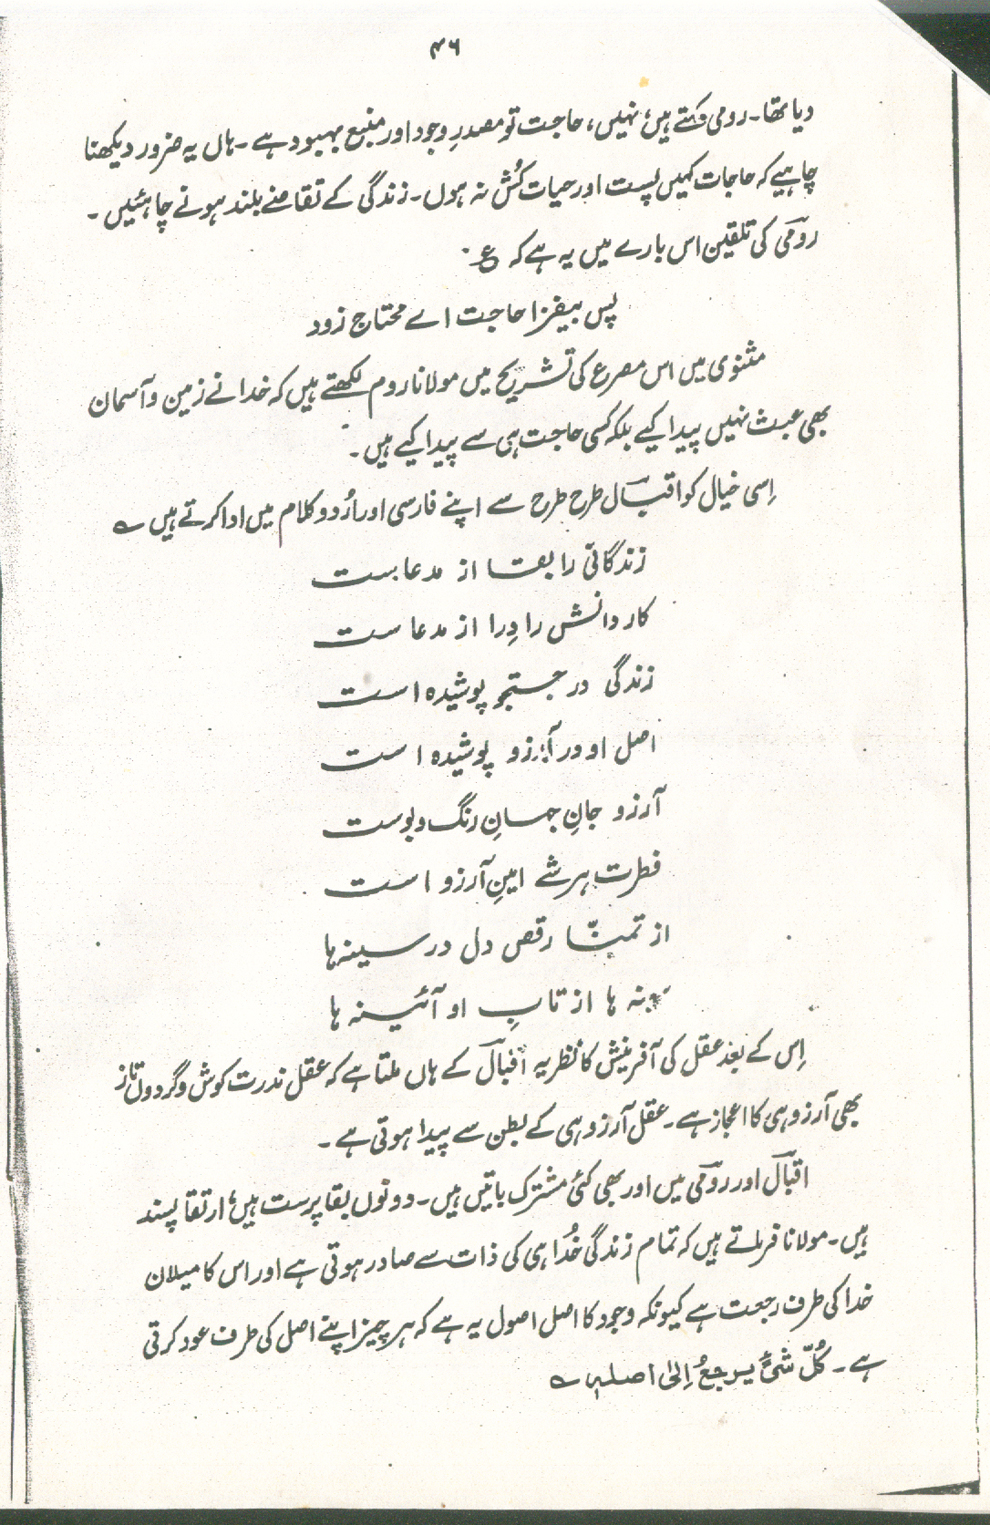 ۴۶
دیا تھا۔ رومی کہتے ہیں، نہیں، حاجت تو مصدرِ وجود اور منبع بہبود ہے۔ ہاں یہ ضرور دیکھنا
چاہیے کہ حاجات کہیں پست اور حیات کُش نہ ہوں۔ زندگی کے تقاضے بلند ہونے چاہئیں۔
رومی کی تلقین اس بارے میں یہ ہے کہ ؏
پس بیفزا حاجت اے محتاج زود
مثنوی میں اس مصرع کی تشریح میں مولانا روم لکھتے ہیں کہ خدا نے زمین و آسمان
بھی عبث نہیں پیدا کیے بلکہ کسی حاجت ہی سے پیدا کیے ہیں۔
اِسی خیال کو اقبال طرح طرح سے اپنے فارسی اور اُردو کلام میں ادا کرتے ہیں ؎
زندگانی را بقا از مدعا ست
کاردانش را دِرا از مدعا ست
زندگی در جستجو پوشیدہ است
اصل او در آرزو پوشیدہ است
آرزو جانِ جہانِ رنگ و بوست
فطرت ہر شے امینِ آرزو است
از تمنّا رقص دل در سینہ ہا
سینہ ہا از تابِ او آئینہ ہا
اِس کے بعد عقل کی آفرینش کا نظریہ اقبال کے ہاں ملتا ہے کہ عقل ندرت کوش و گردوں تاز
بھی آرزو ہی کا اعجاز ہے۔ عقل آرزو ہی کے بطن سے پیدا ہوتی ہے۔
اقبال اور رومی میں اور بھی کئی مشترک باتیں ہیں۔ دونوں بقا پرست ہیں، ارتقا پسند
ہیں۔ مولانا فرماتے ہیں کہ تمام زندگی خُدا ہی کی ذات سے صادر ہوتی ہے اور اس کا میلان
خدا کی طرف رجعت ہے کیونکہ وجود کا اصل اصول یہ ہے کہ ہر چیز اپنے اصل کی طرف عود کرتی
ہے۔ کُلّ شئٍ یرجعُ اِلیٰ اصلہٖ ؎